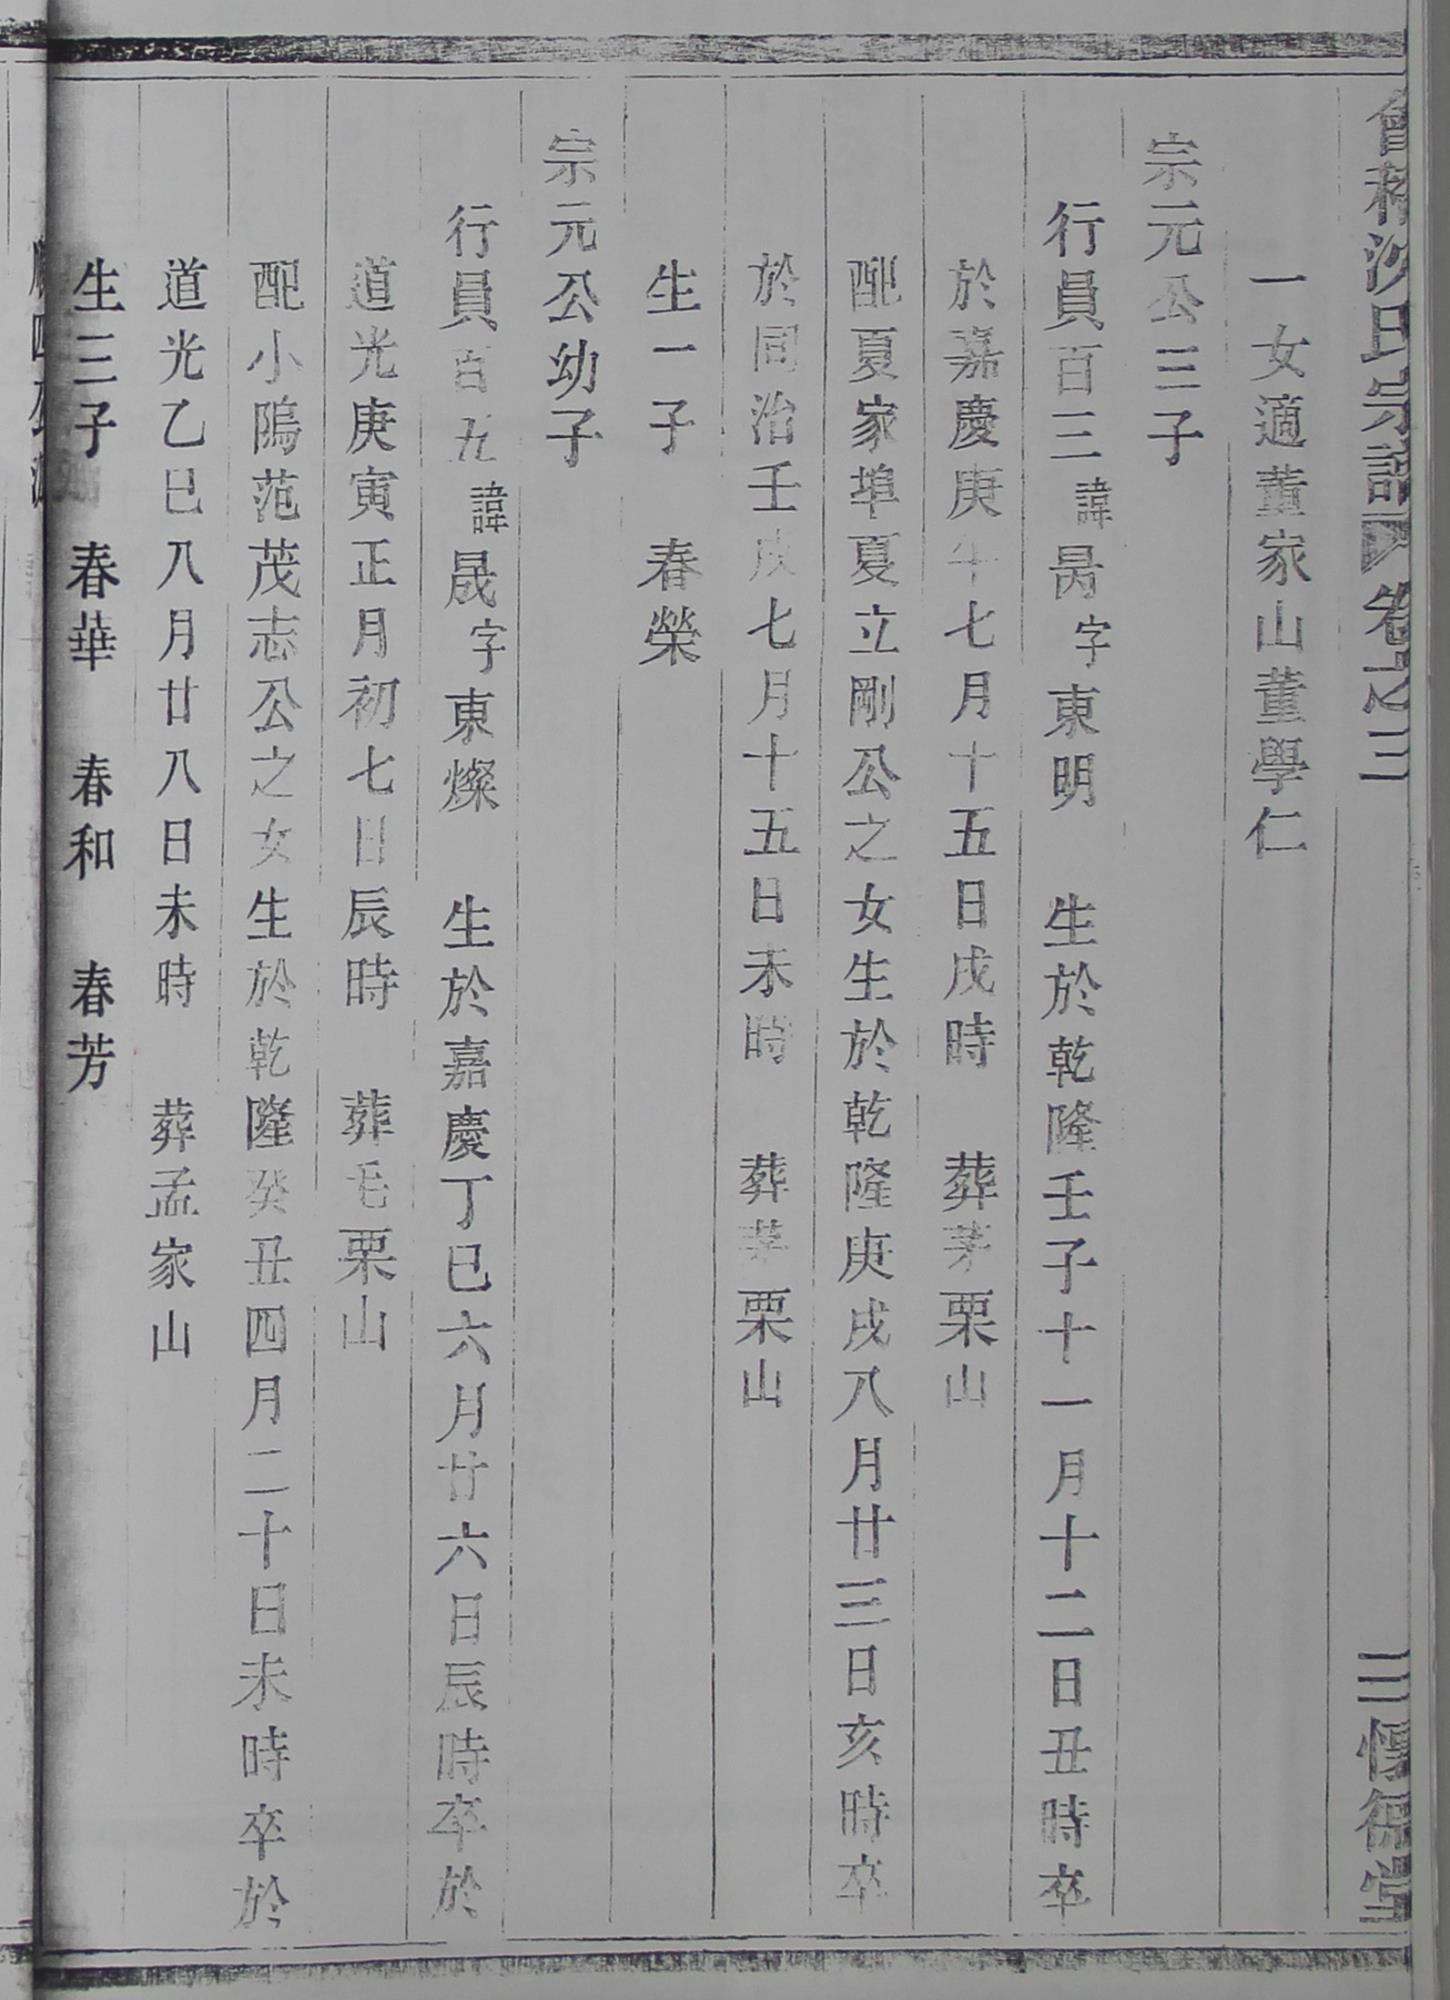 會稽沈氏宗譜 卷之三 三 惇德堂
一女適董家山董學仁
宗元公三子
行員百三諱昺字東明 生於乾隆壬子十一月十二日丑時卒
於嘉慶庚午七月十五日戌時 葬茅栗山
配夏家埠夏立剛公之女生於乾隆庚戌八月廿三日亥時卒
於同治壬戌七月十五日未時 葬茅栗山
生一子 春榮
宗元公幼子
行員百九諱晟字東燦 生於嘉慶丁巳六月廿六日辰時卒於
道光庚寅正月初七日辰時 葬毛栗山
配小隖范茂志公之女生於乾隆癸丑四月二十日未時卒於
道光乙巳八月廿八日未時 葬孟家山
生三子 春華 春和 春芳